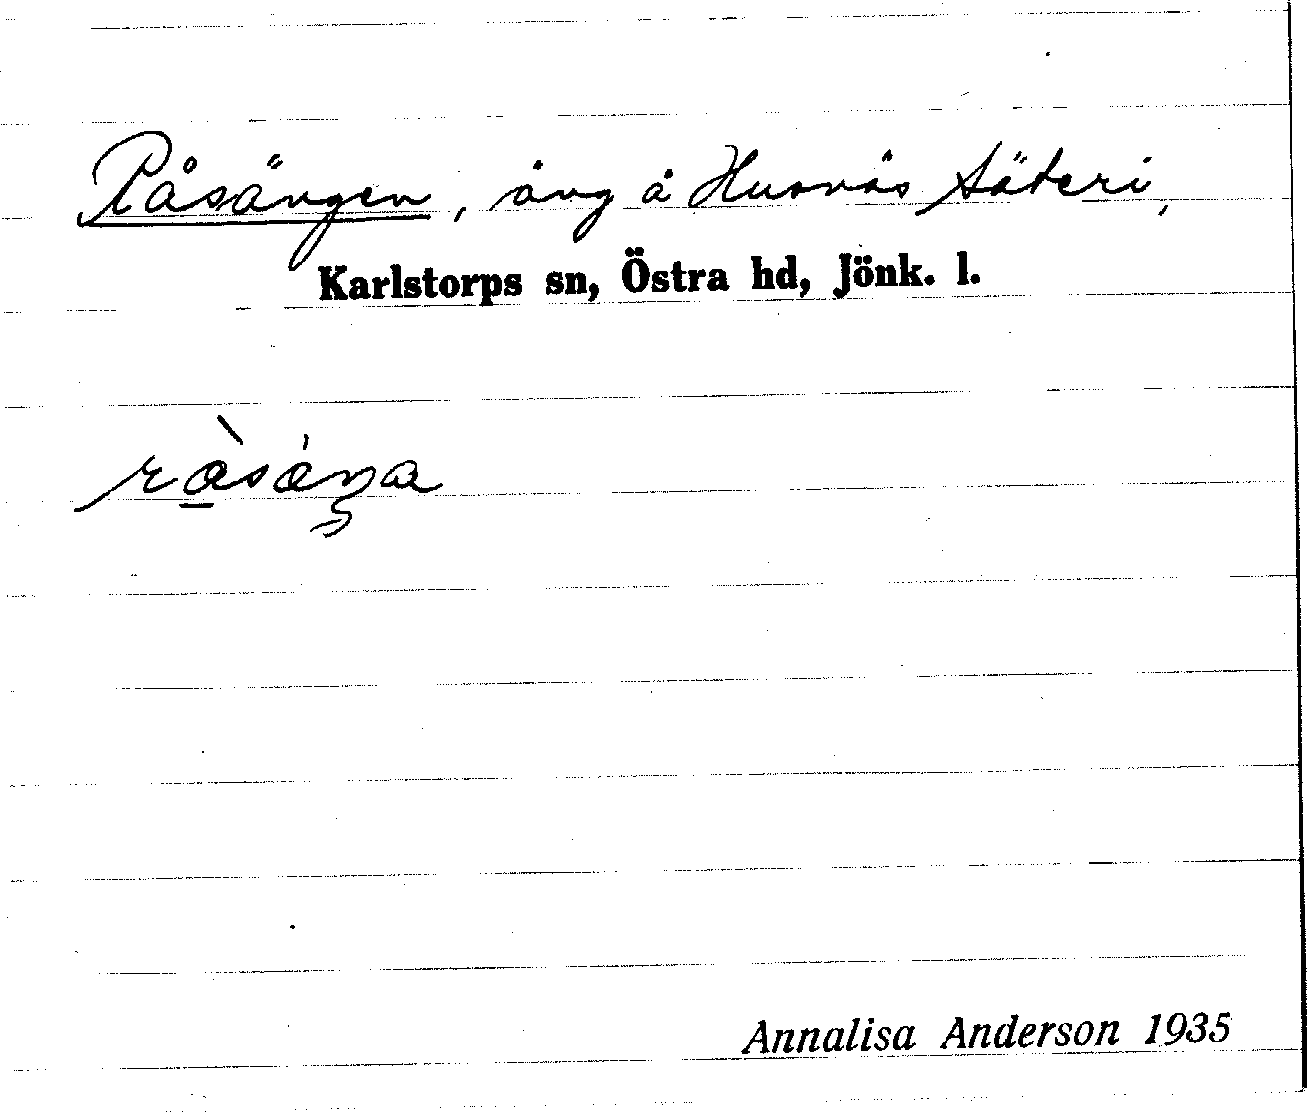 Råsängen, äng å Husnäs Säteri,
Karlstorps sn, Östra hd, Jönk. l.
Annalisa Anderson 1935